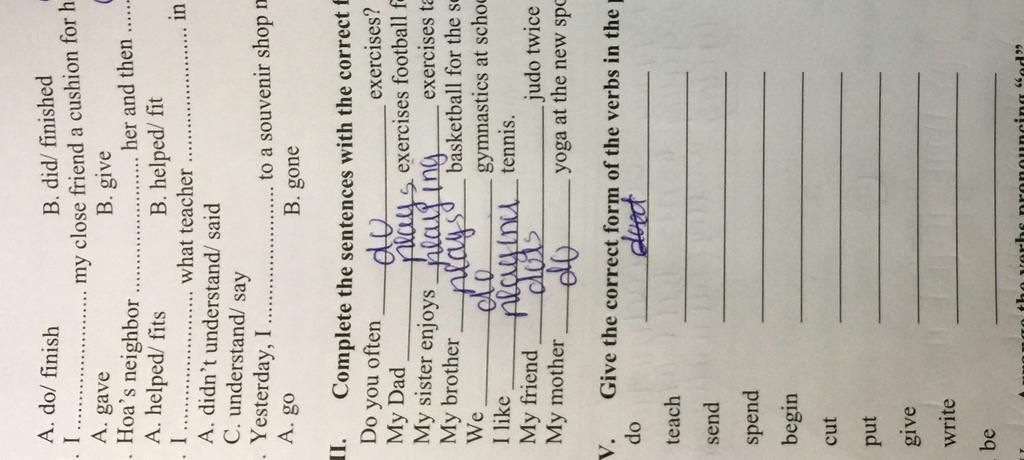 A. do/ finish B. did/ finished
I .................. my close friend a cushion for h
A. gave B. give
Hoa's neighbor .................. her and then .....
A. helped/ fits B. helped/ fit
I .................. what teacher .................. in
A. didn't understand/ said
C. understand/ say
Yesterday, I .................. to a souvenir shop
A. go B. gone
II. Complete the sentences with the correct f
Do you often do exercises?
My Dad plays exercises football f
My sister enjoys playing exercises ta
My brother plays basketball for the sc
We do gymnastics at schoo
I like tennis.
My friend judo twice
My mother do yoga at the new spo
V. Give the correct form of the verbs in the p
do
teach
send
spend
begin
cut
put
give
write
be
the verbs pronouncing "ed"